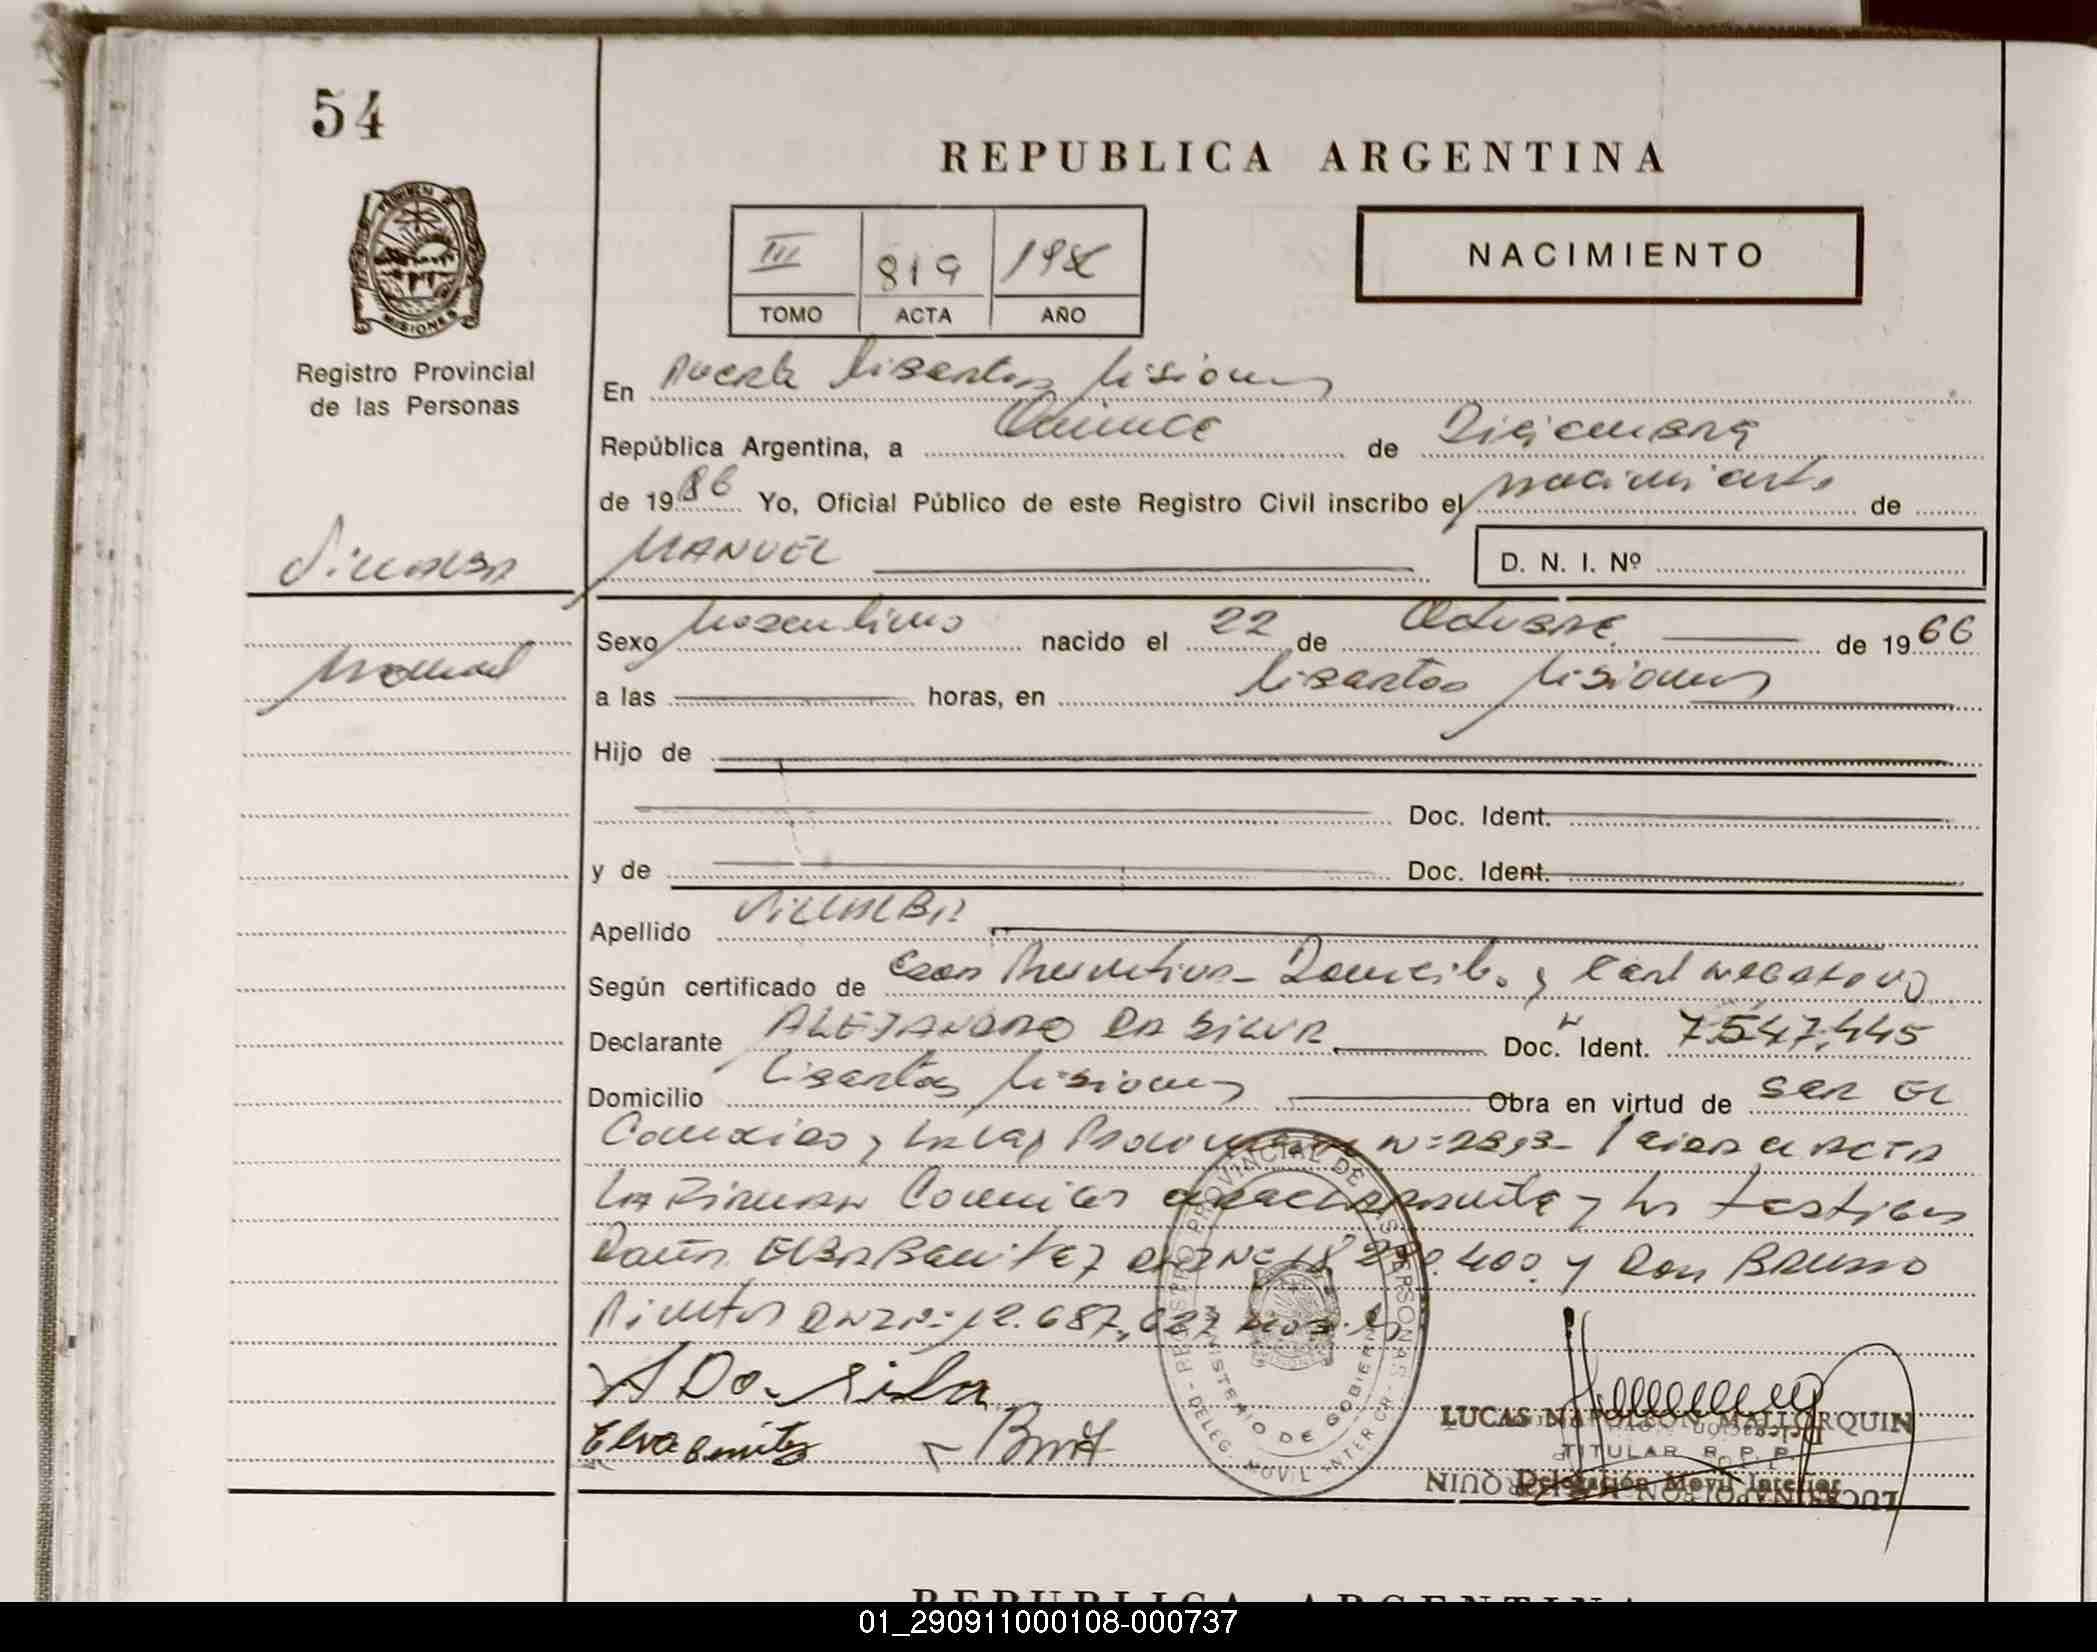 54
REPUBLICA ARGENTINA
PROVINCIA
MISIONES
Registro Provincial
de las Personas
III 819 198
TOMO ACTA AÑO
NACIMIENTO
En Puerto Libertad Misiones
República Argentina, a Quince de Diciembre
de 1986 Yo, Oficial Público de este Registro Civil inscribo el nacimiento de
Villalba
MANUEL
D. N. I. Nº
Manuel
Sexo Masculino nacido el 22 de Octubre de 1966
a las horas, en Libertad Misiones
Hijo de
Doc. Ident.
y de Doc. Ident.
Apellido VILLALBA
Según certificado de Edad Presuntiva - Domicilio y Cert Negativo
Declarante ALEJANDRO DA SILVA Doc. Ident. 7.547.445
Domicilio Libertad Misiones Obra en virtud de SER EL
y Ley Provincial Nº ACTA
La Firman el declarante y los testigos
Doña Elba Benitez DNI Nº 18.2 .400 y Don Bruno
DNI Nº 12.687.627
A Da Silva
Elva Benitez
REGISTRO PROVINCIAL DE LAS PERSONAS
MINISTERIO DE GOBIERNO
DELEG. MOVIL INTER
LUCAS NAPOLEON MALLORQUIN
TITULAR R. P. P.
Delegación Movil Interior
REPUBLICA ARGENTINA
01_290911000108-000737